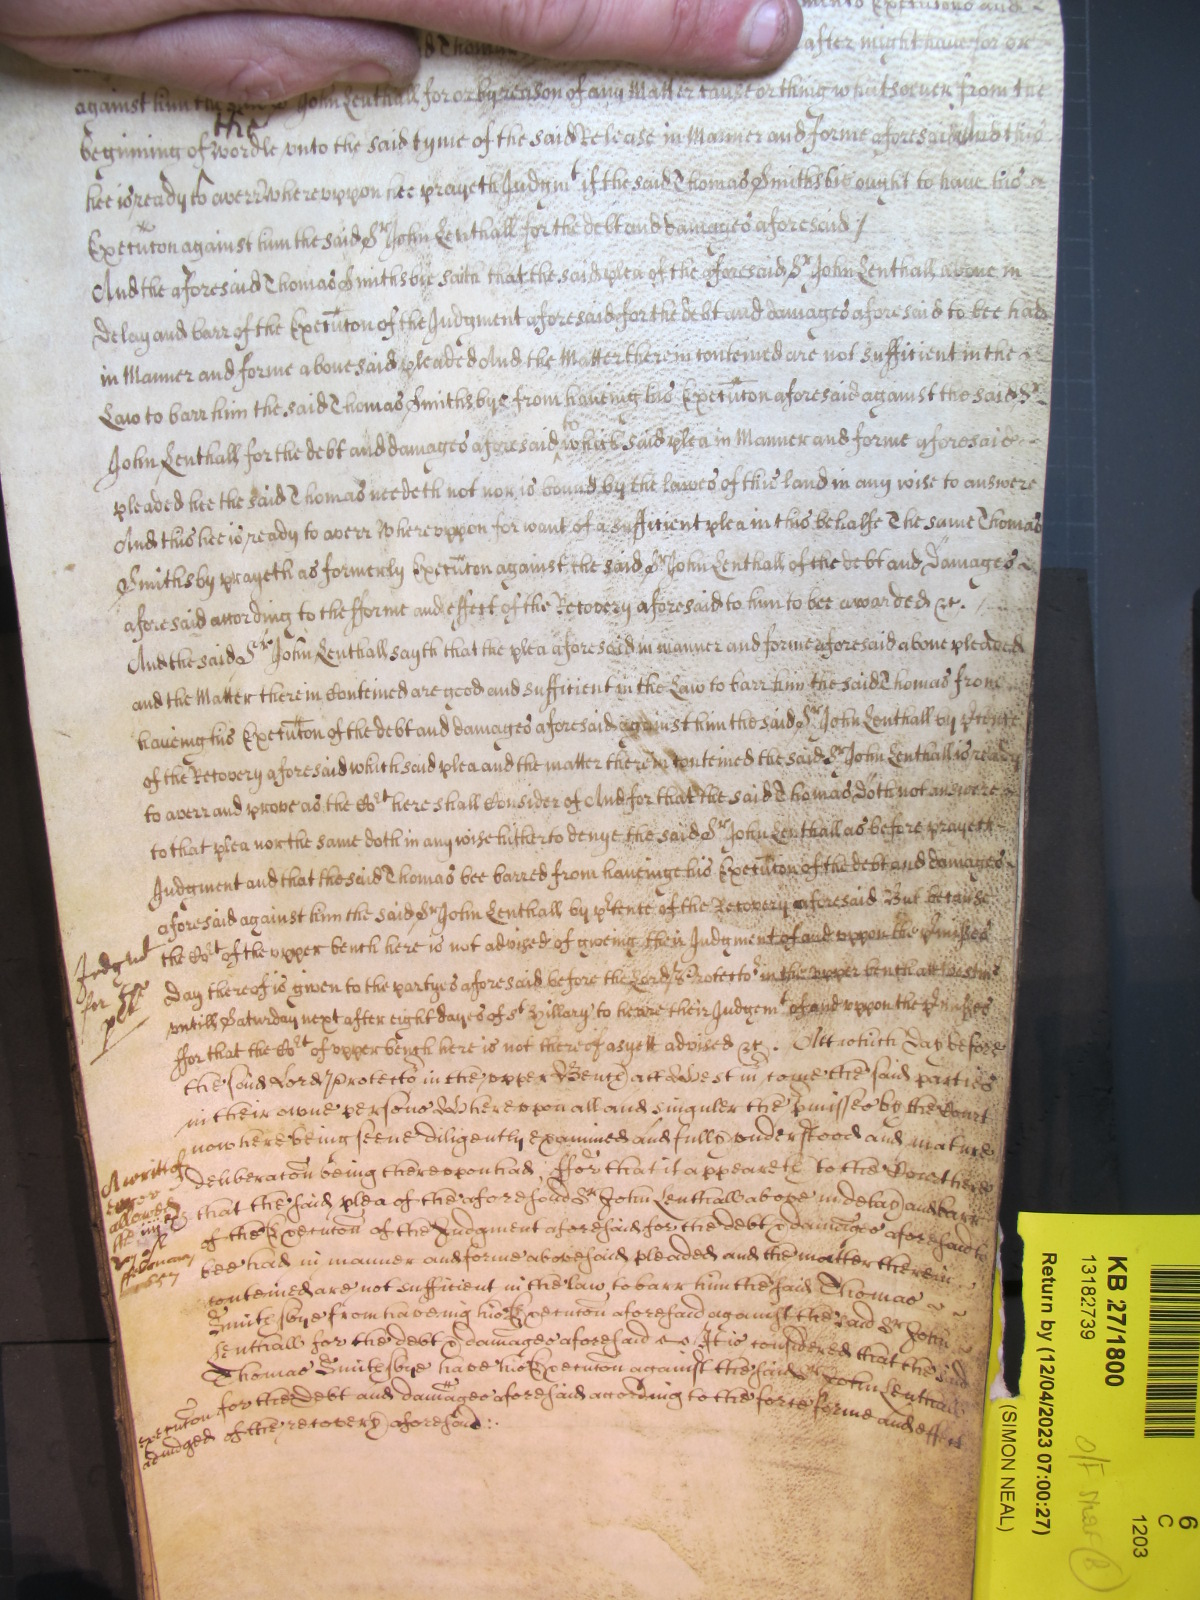 Executons and
d Thomas after might have for or
against him the said Sr John Lenthall for or by reason of any Matter cause or thing whatsoever from the
beginning of the wordle vnto the said tyme of the said Release in Manner and forme aforesaid And this
hee is ready to averr Wherevppon hee prayeth Judgmt if the said Thomas Smithsbie ought to have his
Executon against him the said Sr John Lenthall for the debt and damages aforesaid /
And the aforesaid Thomas Smithsbie saith that the said plea of the aforesaid Sr John Lenthall above in
delay and barr of the Executon of the Judgment aforesaid for the debt and damages aforesaid to bee had
in Manner and forme abouesaid pleaded And the Matter therein conteined are not sufficient in the
Law to barr him the said Thomas Smithsbye from haueing his Executon aforesaid against the said Sr
John Lenthall for the debt and damages aforesaid to which said plea in Manner and forme aforesaid
pleaded hee the said Thomas needeth not nor is bound by the lawes of this land in any wise to answere
And this hee is ready to averr Wherevppon for want of a sufficient plea in this behalfe The same Thomas
Smithsby prayeth as formerly Executon against the said Sr John Lenthall of the debt and Damages
aforesaid according to the fforme and effect of the Recovery aforesaid to him to bee awarded &c.
And the said Sr John Lenthall sayth that the plea aforesaid in manner and forme aforesaid aboue pleaded
and the Matter therein Conteined are good and sufficient in the Law to barr him the said Thomas from
haueing his Executon of the debt and damages aforesaid against him the said Sr John Lenthall by ptence
of the Recovery aforesaid which said plea and the matter therein conteined the said Sr John Lenthall is ready
to averr and prove as the Cort here shall Consider of And for that the said Thomas doth not answere
to that plea nor the same doth in any wise hitherto denye the said Sr John Lenthall as before prayeth
Judgment and that the said Thomas bee barred from haueinge his Executon of the debt and damages
aforesaid against him the said Sr John Lenthall by ptence of the Recovery aforesaid But because
Judgmt for plt
the Cort of the vpper bench here is not advised of giveing their Judgment of and vppon the pmisses
Day thereof is given to the partyes aforesaid before the Lord Protector in the vpper bench att Westmr
vntill Saturday next after eight dayes of St Hillary to heare their Judgemt of and vppon the pmisses
ffor that the Cort of vpper bench here is not thereof as yett advised &c. Att which Day before
the said Lord Protector in the vpper Bench att Westmr come the said parties
in their owne persons Wherevpon all and singuler the pmisses by the Court
now here being seene diligently examined and fully vnderstood and mature
A writt of error allowed the day of ffebruary 1657
deliberaton being therevpon had, ffor that it appeareth to the Court here
that the said plea of the aforesaid Sr John Lenthall above in delay and barr
of the Executon of the Judgment aforesaid for the debt & damages aforesaid to
bee had in manner and forme abovesaid pleaded and the matter therein
conteined are not sufficient in the law to barr him the said Thomas
Smithsbye from haveing his Executon aforesaid against the said Sr John
Lenthall for the debt & damages aforesaid It is considered that the said
Thomas Smithsbye have his Executon against the said Sr John Lenthall
executon for the debt and damages aforesaid according to the force forme and effect
adiudged of the recovery aforesaid:.
KB 27/1800
13182739
Return by (12/04/2023 07:00:27)
(SIMON NEAL)
6
C
1203